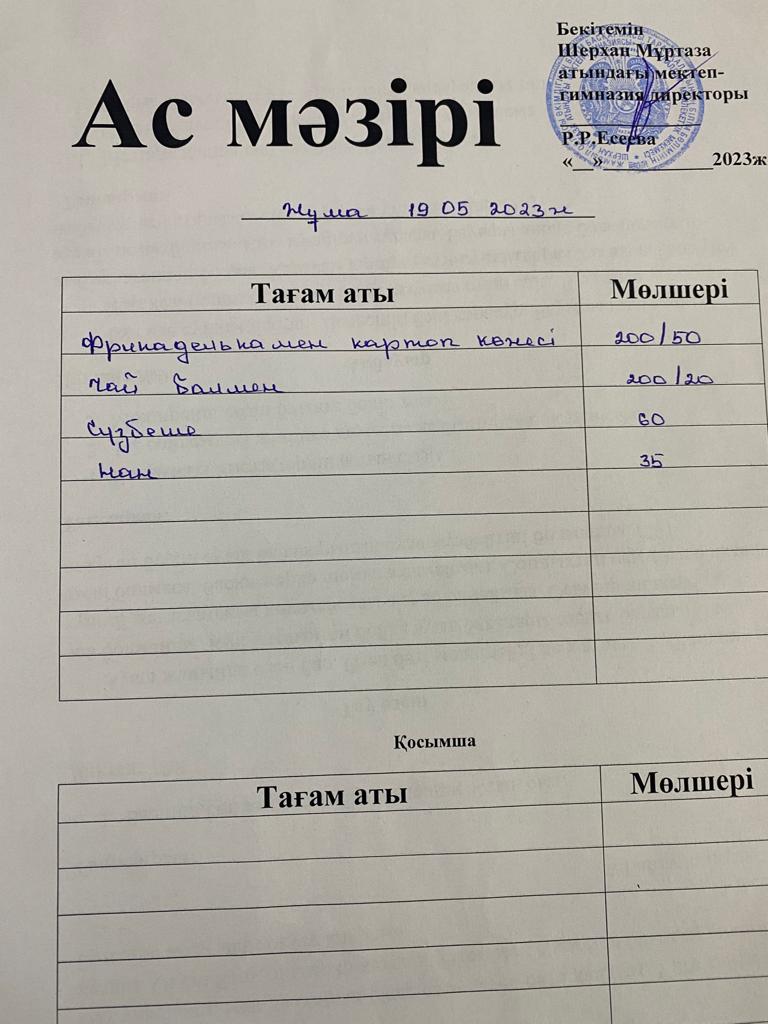 Бекітемін
Шерхан Мұртаза
атындағы мектеп-
гимназия директоры
Р.Р.Есеева
«__»____________2023ж
Ас мәзірі
Жұма 19 05 2023ж
Тағам аты Мөлшері
Фрикаделькамен картоп көжесі 200/50
Чай балмен 200/20
Сүзбеше 60
Нан 35
Қосымша
Тағам аты Мөлшері